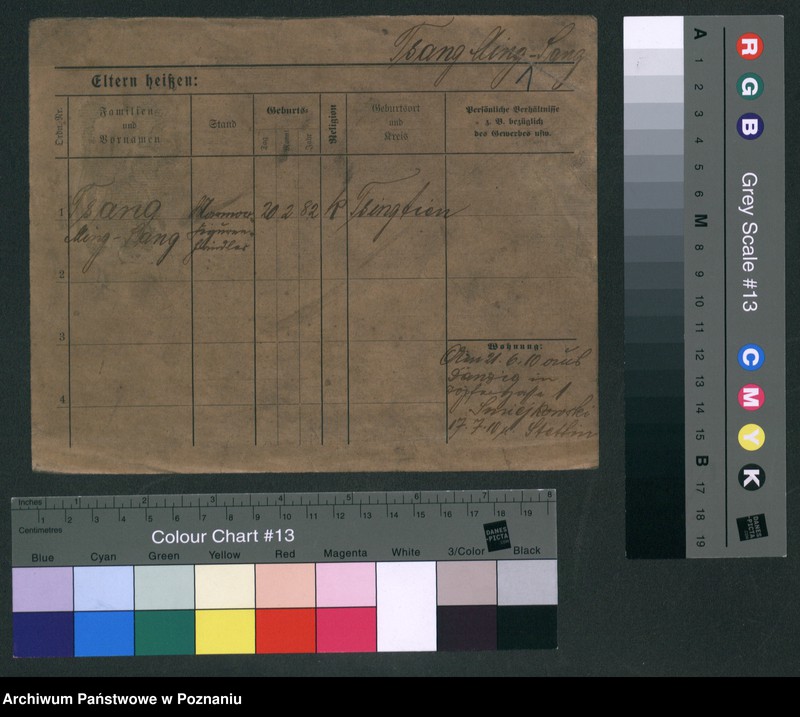 Tsang Ming-Sang
Eltern heißen:
Ordn. Nr.
Familien-
und
Vornamen
Stand
Geburts-
Tag
Monat
Jahr
Religion
Geburtsort
und
Kreis
Persönliche Verhältnisse
z. B. bezüglich
des Gewerbes usw.
1
Tsang
Ming-Sang
Marmor
figuren
händler
20 2 82
K
Tsingtien
2
3
4
Wohnung:
21. 6. 10 aus
Danzig in
1
Smiejkowski
17. 7. 10 n. Stettin
A
1
2
3
4
5
6
M
8
9
10
11
12
13
14
15
B
17
18
19
R
G
B
Grey Scale #13
C
M
Y
K
DANES
PICTA
.COM
Inches
1
2
3
4
5
6
7
8
Centimetres
1
2
3
4
5
6
7
8
9
10
11
12
13
14
15
16
17
18
19
Colour Chart #13
DANES
PICTA
.COM
Blue
Cyan
Green
Yellow
Red
Magenta
White
3/Color
Black
Archiwum Państwowe w Poznaniu